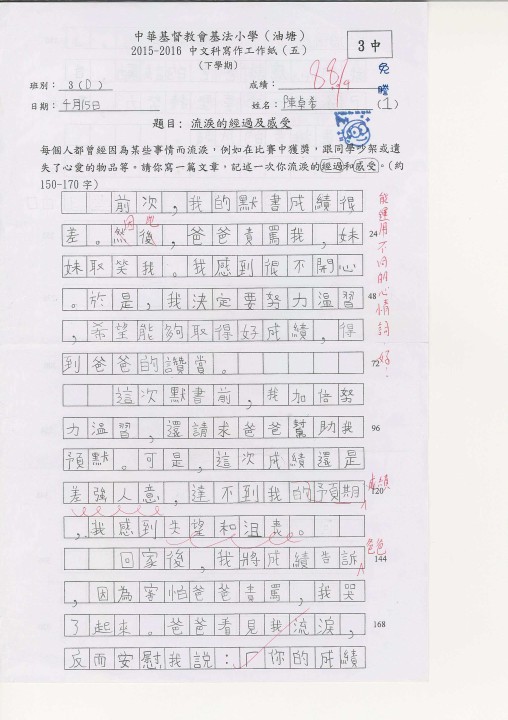 中華基督教會基法小學（油塘）
2015-2016 中文科寫作工作紙（五）
（下學期）
3中
班別： 3(D)
成績： 88/9
免謄
日期： 4月15日
姓名： 陳卓希 (1)
題目：流淚的經過及感受
每個人都曾經因為某些事情而流淚，例如在比賽中獲獎，跟同學吵架或遺
失了心愛的物品等。請你寫一篇文章，記述一次你流淚的經過和感受。（約
150-170 字）
前次，我的默書成績很
差。然後，爸爸責罵我，妹 24
妹取笑我。我感到很不開心
。於是，我決定要努力溫習 48
，希望能夠取得好成績，得
到爸爸的讚賞。 72
這次默書前，我加倍努
力溫習，還請求爸爸幫助我 96
預默。可是，這次成績還是
差強人意，達不到我的預期 120
，我感到失望和沮喪。
回家後，我將成績告訴 144
，因為害怕爸爸責罵，我哭
了起來。爸爸看見我流淚， 168
反而安慰我說：「你的成績
能運用不同的心情詞
好！
成績
爸爸